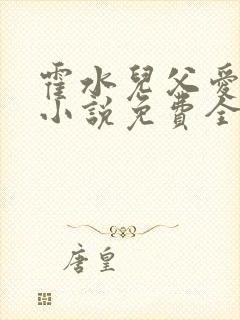 霍水兒父愛
小說免費全
唐皇